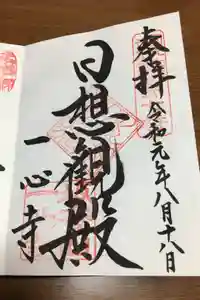 奉拝
令和元年八月十八日
日想観殿
一心寺